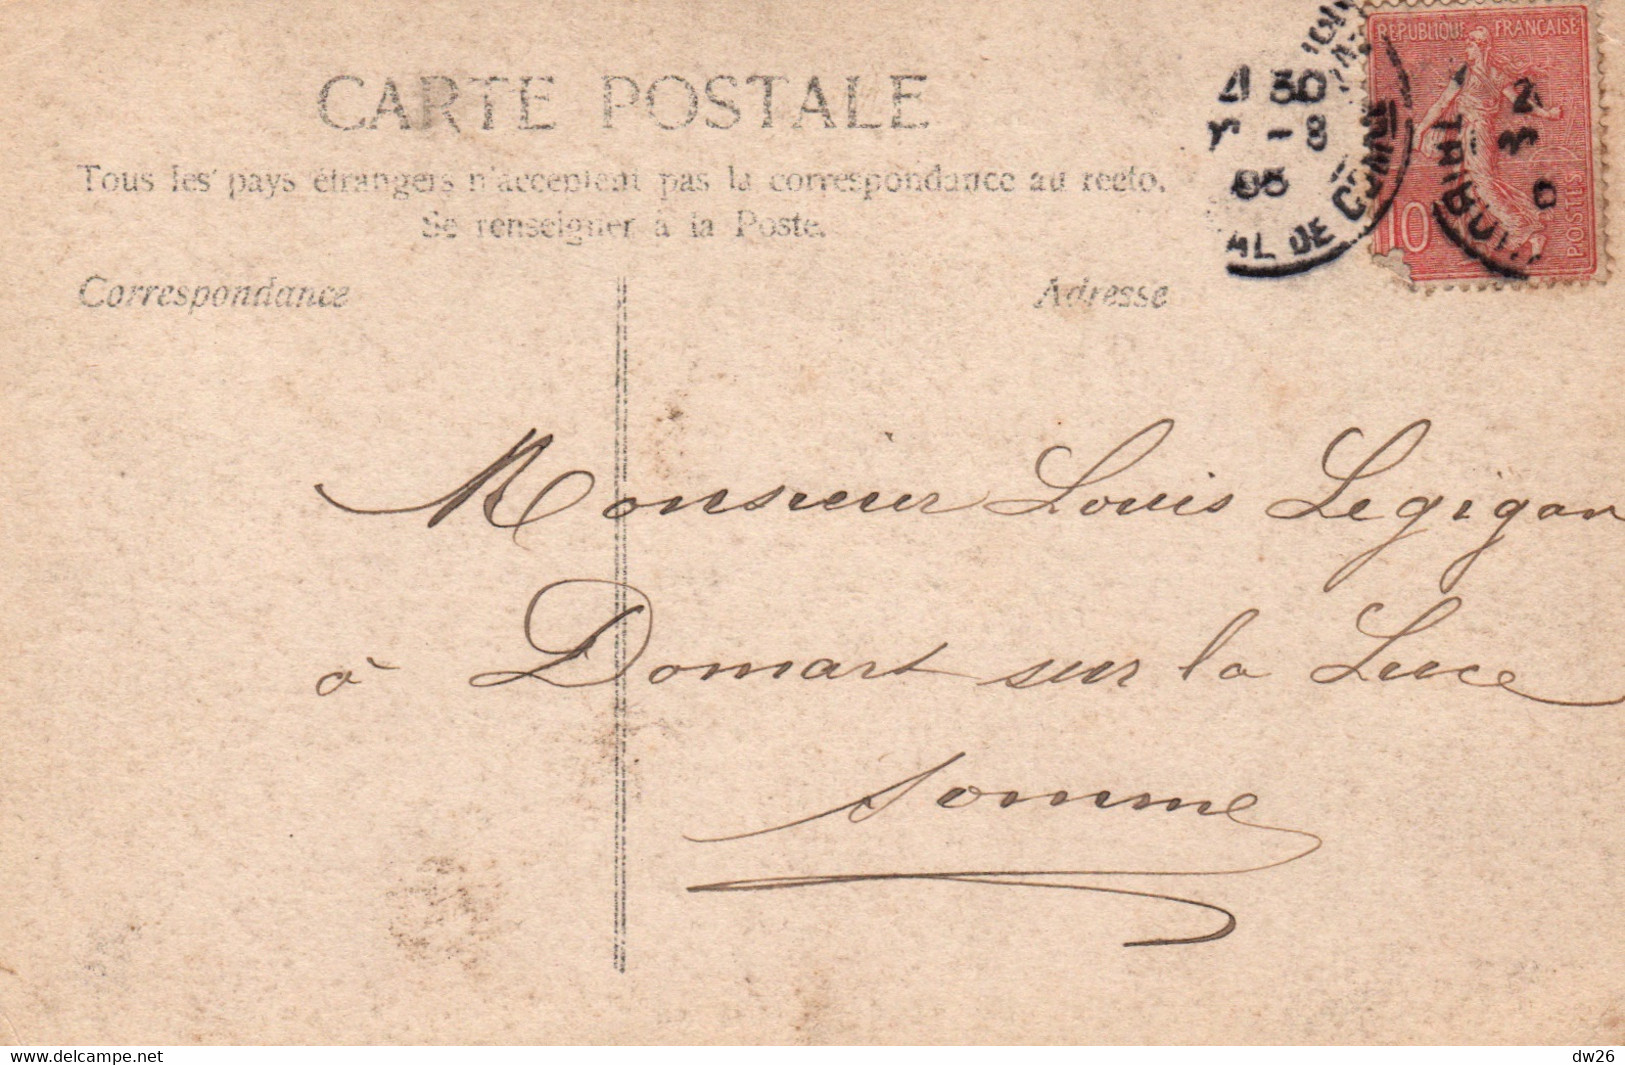 CARTE POSTALE
Tous les pays étrangers n'acceptent pas la correspondance au recto.
Se renseigner à la Poste.
Correspondance
Adresse
RÉPUBLIQUE FRANÇAISE
10
POSTES
30
1-8
AL DE COMM
Monsieur Louis Legigan
à Domart sur la Luce
Somme
dw26